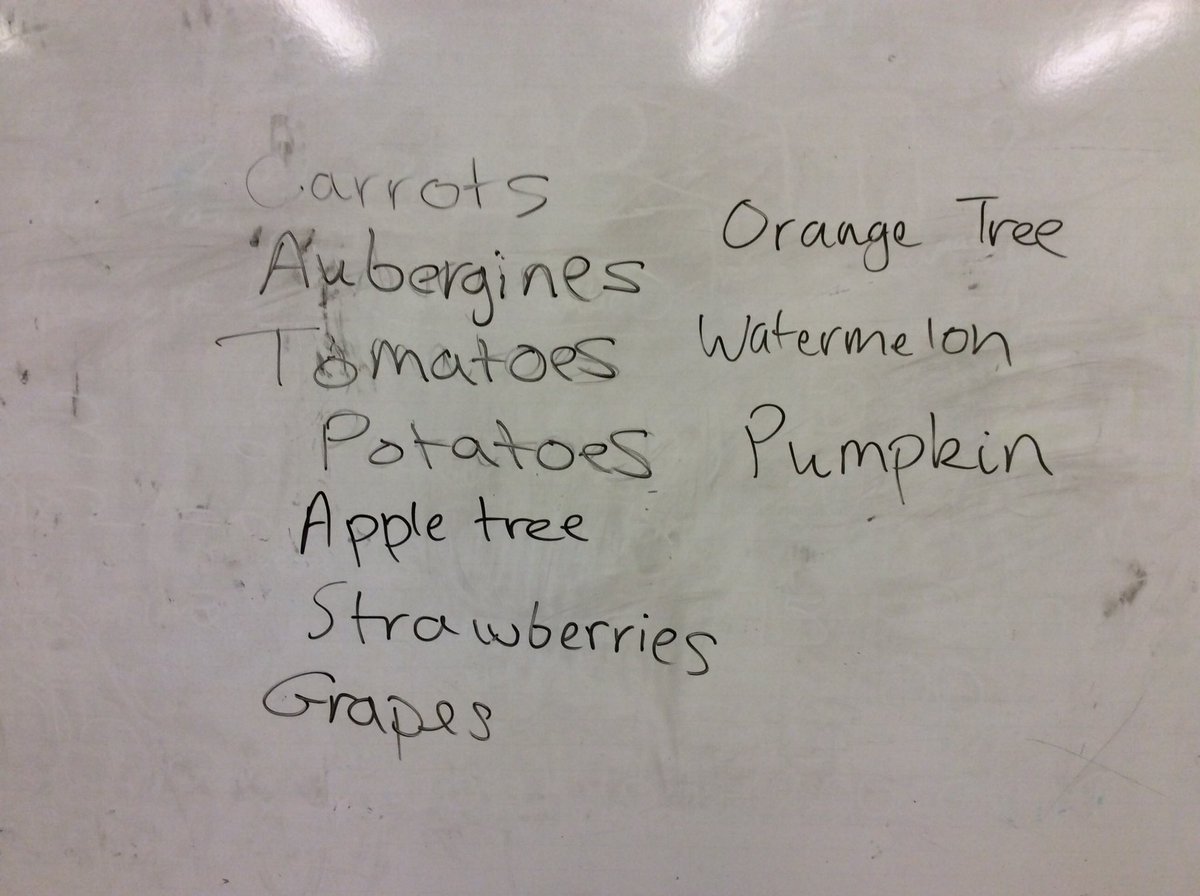 Carrots
Aubergines
Tomatoes
Potatoes
Apple tree
Strawberries
Grapes
Orange Tree
Watermelon
Pumpkin